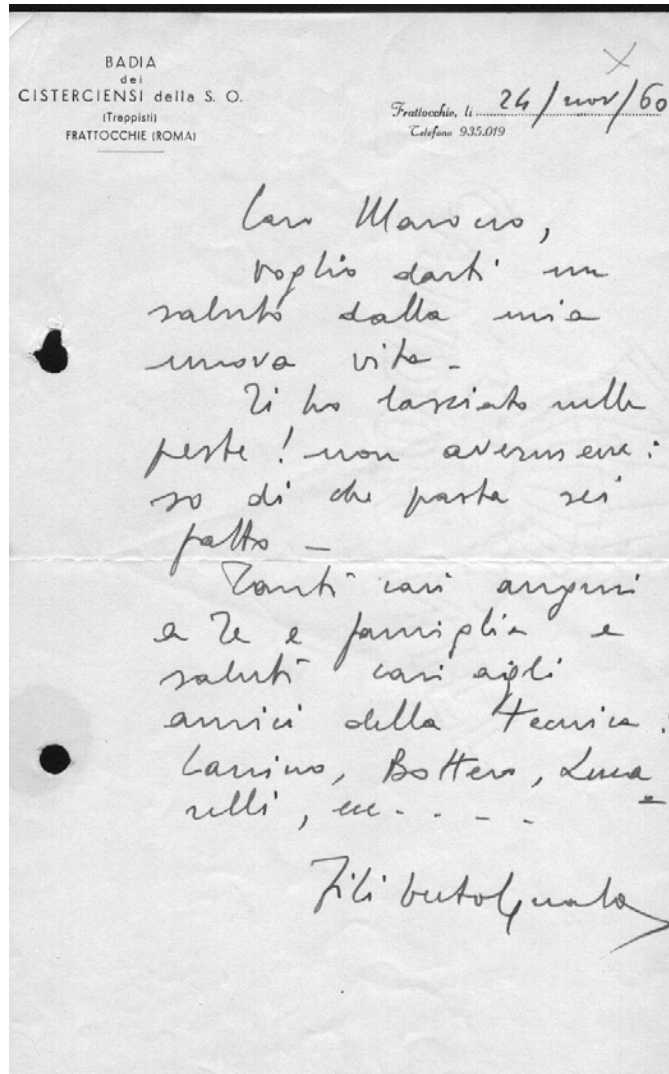 BADIA
dei
CISTERCIENSI della S. O.
(Trappisti)
FRATTOCCHIE (ROMA)
Frattocchie, li 24/nov/60
Telefono 935.019
Caro
voglio darti un
saluto dalla mia
nuova vita -
Ti ho lasciato nelle
peste! non avermene:
so di che pasta sei
fatto -
Tanti cari auguri
a Te e famiglia e
saluti cari agli
amici della Tecnica.
Bottero, Luca
relli, ecc - . - -
Filiberto Guala